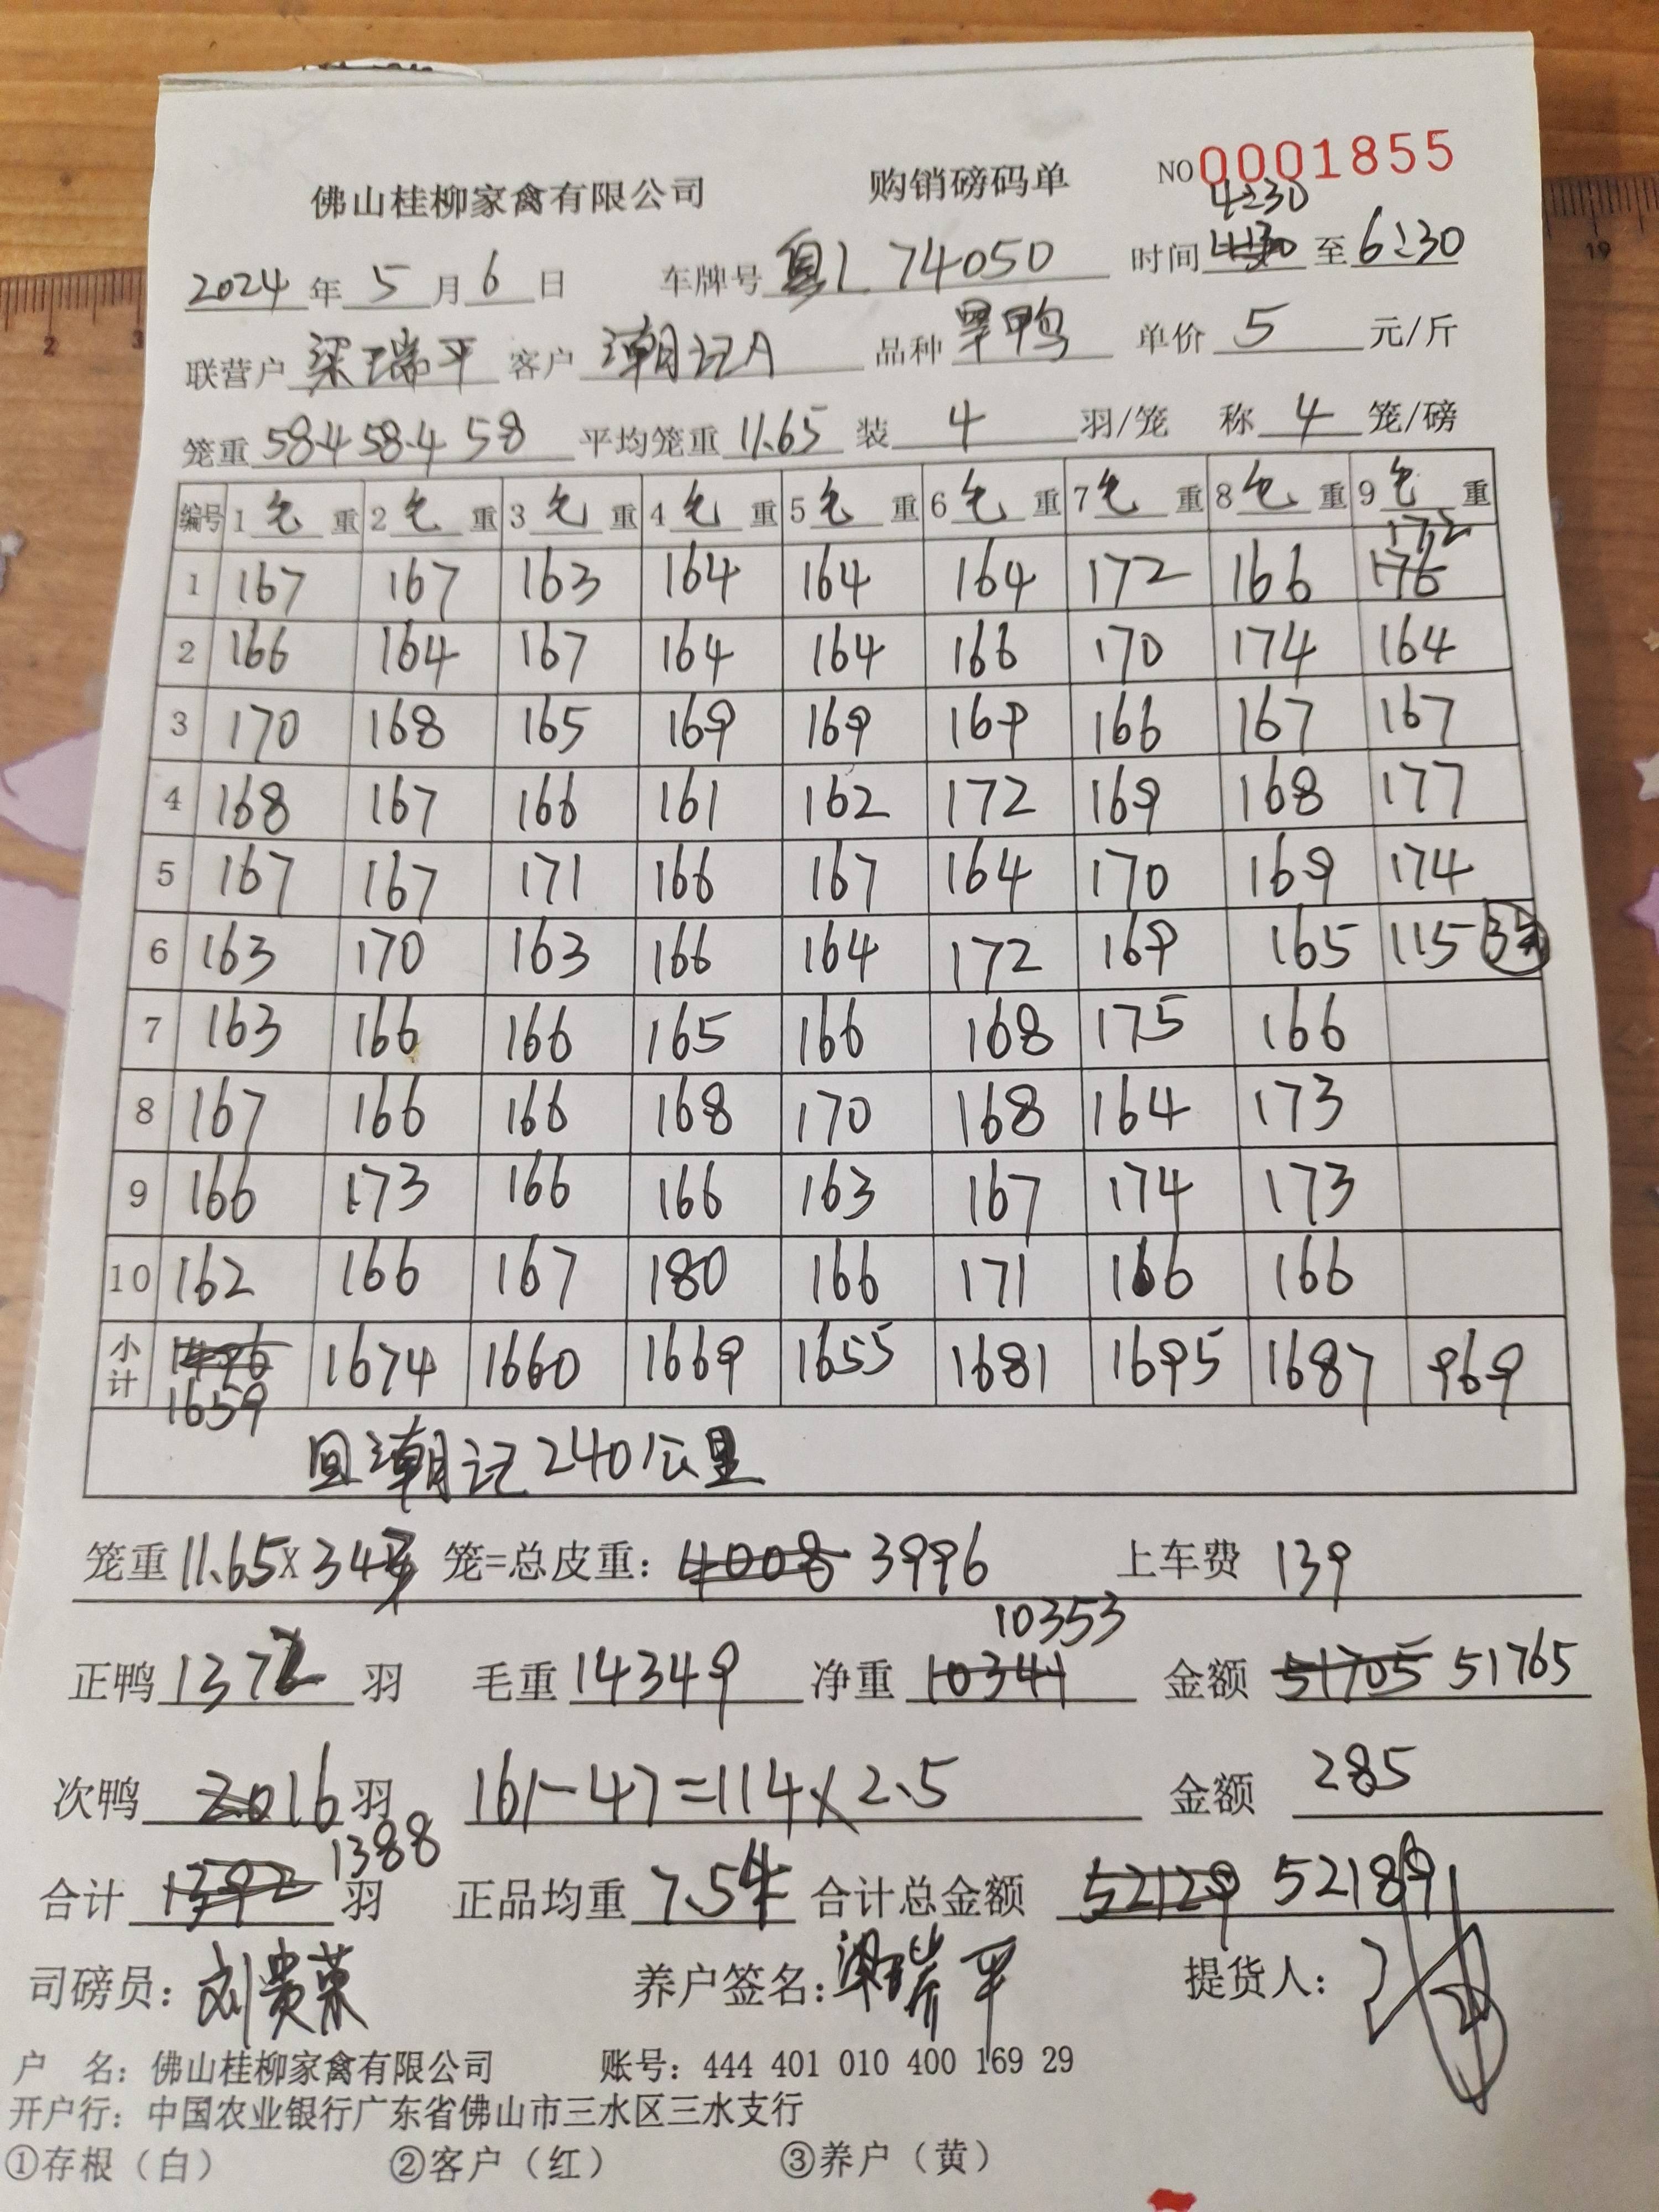 佛山桂柳家禽有限公司 购销磅码单 NO 0001855
4:30
2024 年 5 月 6 日 车牌号 粤L 74050 时间 4:30 至 6:30
联营户 梁瑞平 客户 潮记A 品种 旱鸭 单价 5 元/斤
笼重 58.4 58.4 58 平均笼重 11.65 装 4 羽/笼 称 4 笼/磅
编号 1 毛 重 2 毛 重 3 毛 重 4 毛 重 5 毛 重 6 毛 重 7 毛 重 8 毛 重 9 毛 重
172
1 167 167 163 164 164 164 172 166 176
2 166 164 167 164 164 166 170 174 164
3 170 168 165 169 169 169 166 167 167
4 168 167 166 161 162 172 169 168 177
5 167 167 171 166 167 164 170 169 174
6 163 170 163 166 164 172 169 165 115 3
7 163 166 166 165 166 168 175 166
8 167 166 166 168 170 168 164 173
9 166 173 166 166 163 167 174 173
10 162 166 167 180 166 171 166 166
小计 1496 1674 1660 1669 1655 1681 1695 1687 969
1659
回潮记240公里
笼重 11.65 X 343 笼=总皮重: 4008 3996 上车费 139
10353
正鸭 1372 羽 毛重 14349 净重 10341 金额 51705 51765
次鸭 16 羽 161-47=114×2.5 金额 285
1388
合计 1392 羽 正品均重 7.54 合计总金额 52129 52189
司磅员: 刘贵荣 养户签名: 梁瑞平 提货人:
户 名: 佛山桂柳家禽有限公司 账号: 444 401 010 400 169 29
开户行: 中国农业银行广东省佛山市三水区三水支行
①存根（白） ②客户（红） ③养户（黄）